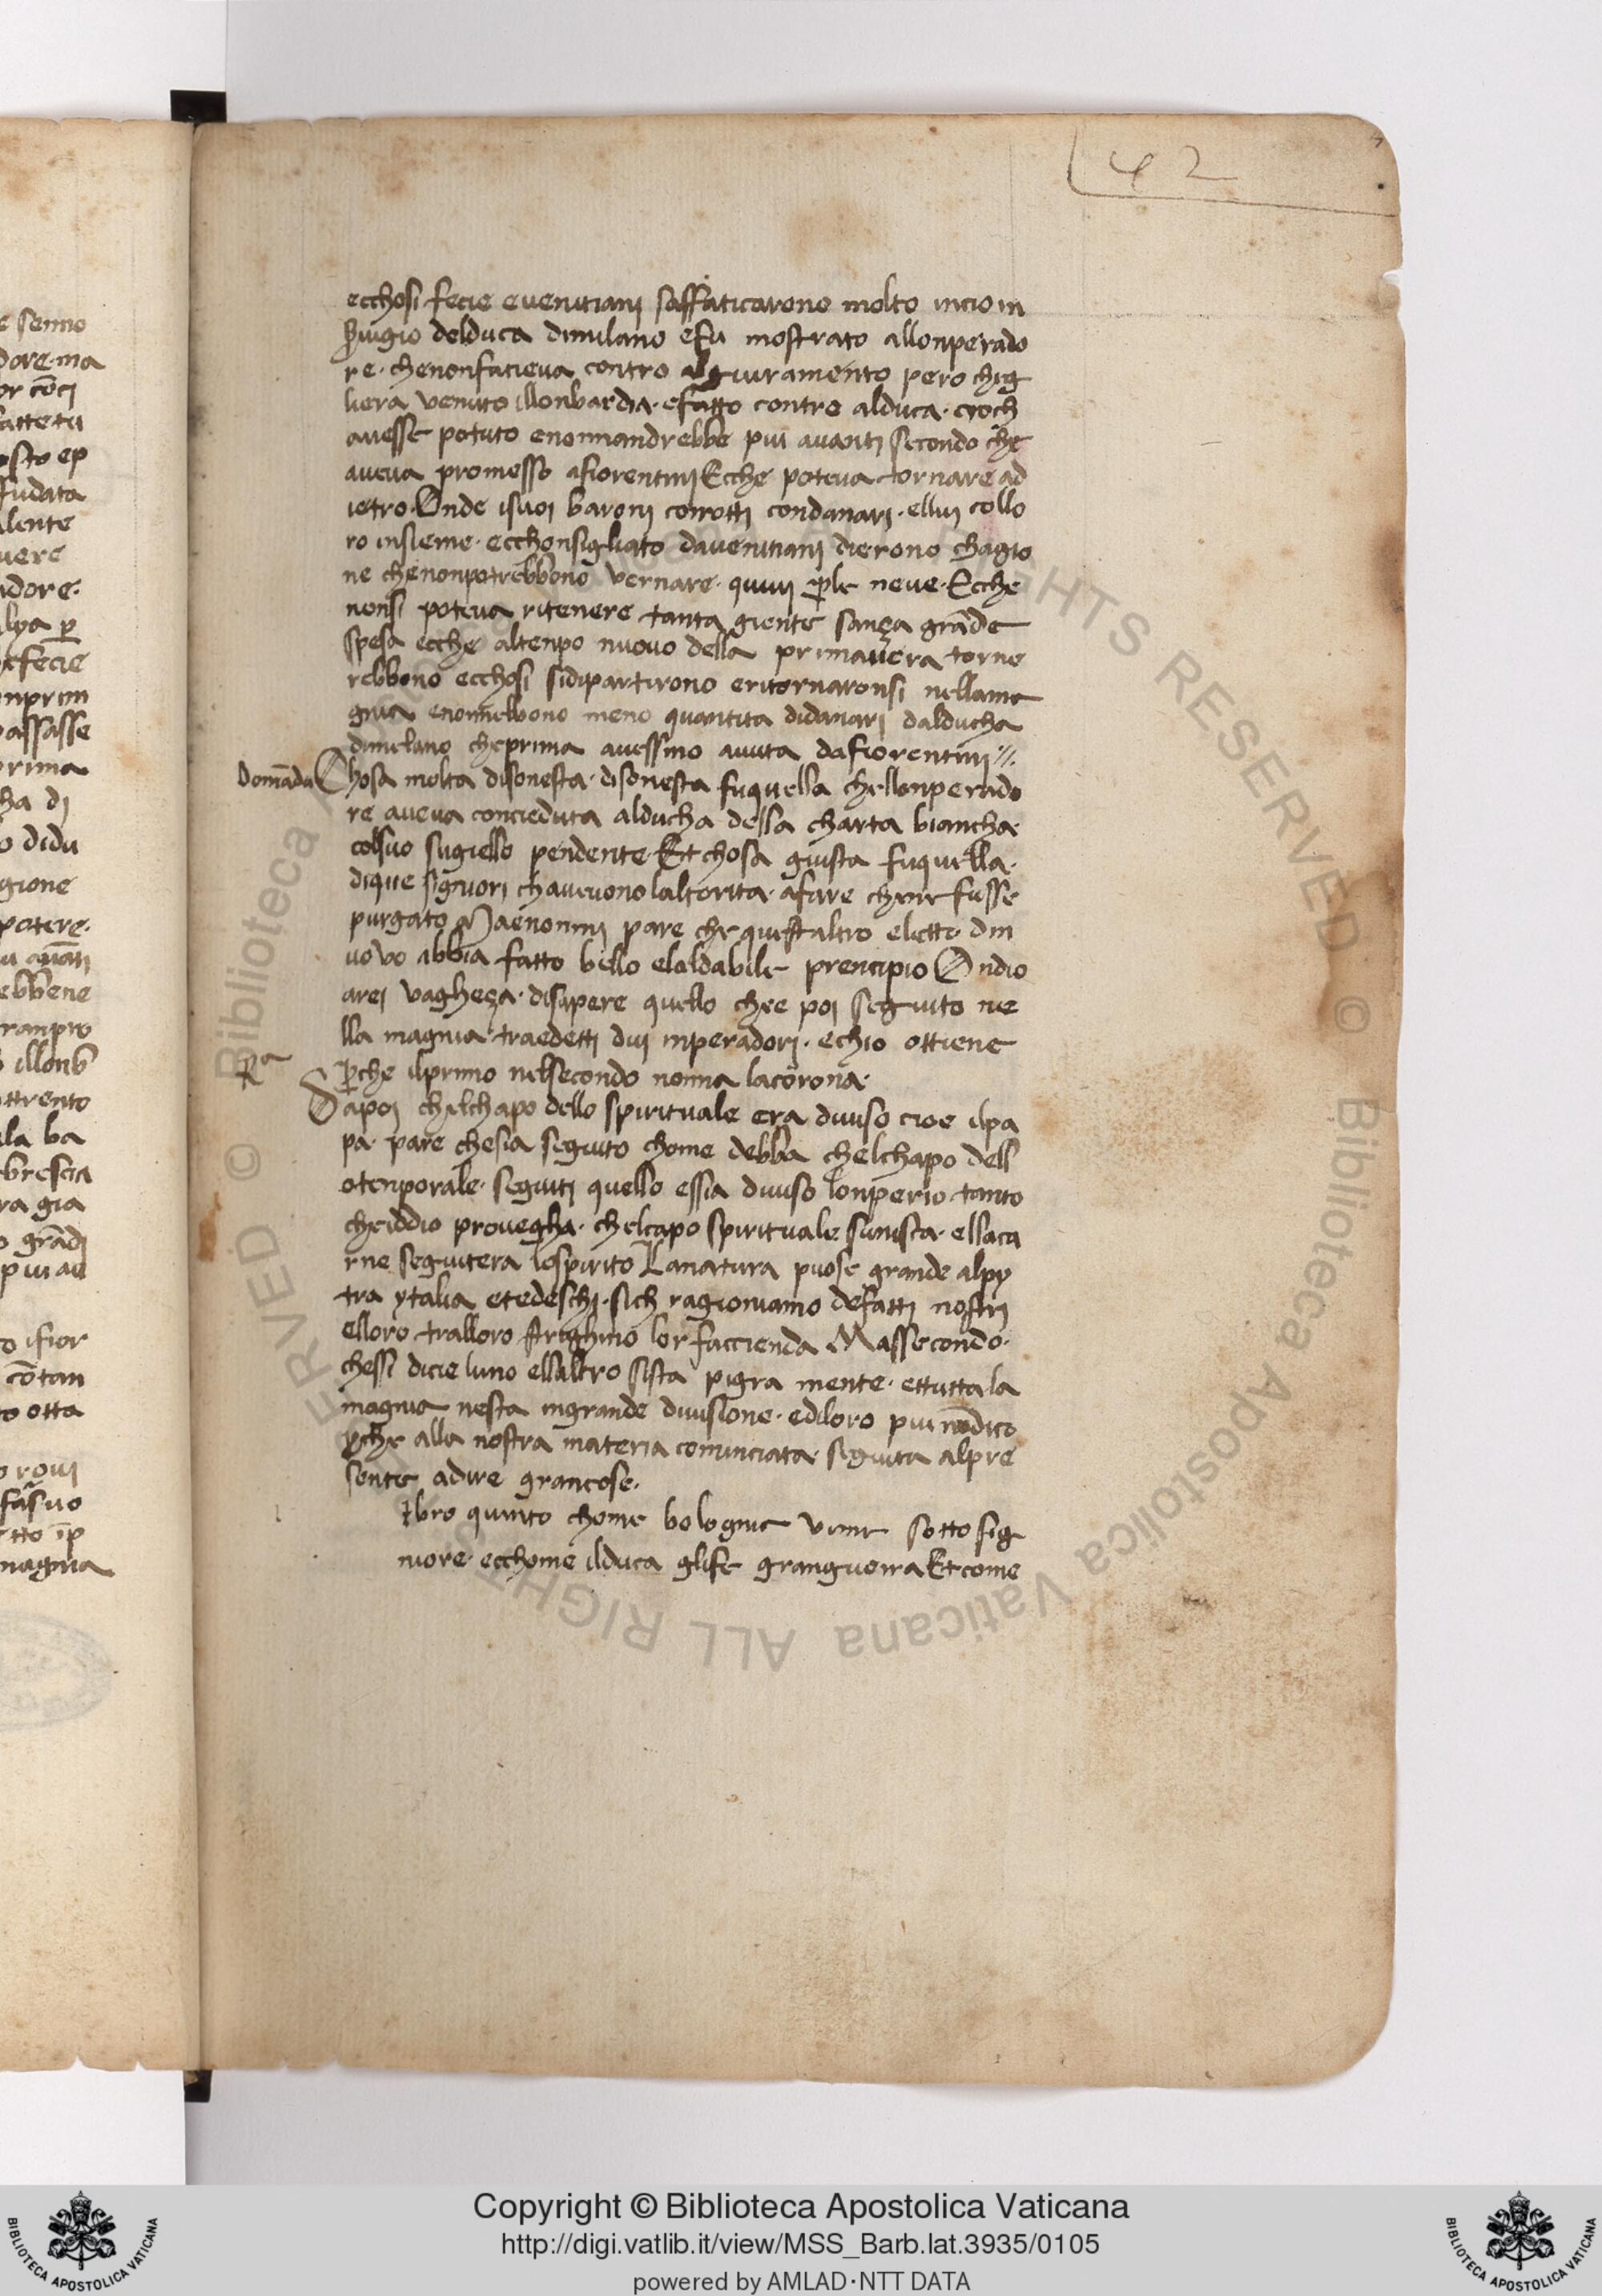 42
ecchosi fecie evenitiani saffaticarono molto incio in
delduca dimilano efu mostrato allonperado
re · chenonfacieva contro algiuramento pero chig
liera venuto illonbardia · efatto contro alduca · cioch
avesse potuto enonnandrebbe piu avanti secondo che
aveva promesso afiorentinj Ecche poteva tornare ad
ietro · Onde isuoj baronj corrotti condanarj · ellui collo
ro insieme · ecchonsigliato davenitianj dierono chagio
ne chenonpotrebbono vernare · quivi p̱le neve · Ecche
nonsi poteva ritenere tanta giente sança grāde
spesa ecche altenpo nuovo della primavera torne
rebbono ecchosi sidipartirono eritornaronsi nellama
gnia enonnebbono meno quantita didanarj dalducha
dimelano cheprima avessino avuta dafiorentini
Domāda Chosa molta disonesta · disonesta fuquella chellonperado
re aveva concieduta alducha della charta biancha ·
colsuo sugiello pendente · Et chosa giusta fuquella ·
dique signiorj chavevono laltorita · afare chene fusse
purgato Maenonmi pare che questaltro eletto · din
uovo abbia fatto bello elaldabile prencipio Ondio
arej vagheça · disapere quello chee poj seguito ne
lla magnia traedetti dui inperadorj · echio ottiene
p̱che ilprimo nelsecondo nonna lacorona ·
Rª Dapoj chelchapo dello spirituale era diviso cioe ilpa
pa · pare chesia seguito chome debba chelchapo dell
otenporale · seguiti quello essia diviso lonperio tanto
cheiddio provegha · chelcapo spirituale sunisca · ellaca
rne seguitera lospirito Lanatura puose grande alpy
tra ytalia etedeschj · sich ragioniamo defatti nostri
elloro tralloro frighino lor faccienda Massecondo ·
chessi dicie luno ellaltro sista pigra mente · ettutta la
magnia nesta ingrande divisione · ediloro piu nōdico
p̱che alla nostra materia cominciata · seguita alpre
sente adire grancose ·
Ibro quinto chome bolognia venne sotto sig
niore · ecchome ilduca glife granguerra Et come
Copyright © Biblioteca Apostolica Vaticana
http://digi.vatlib.it/view/MSS_Barb.lat.3935/0105
powered by AMLAD·NTT DATA